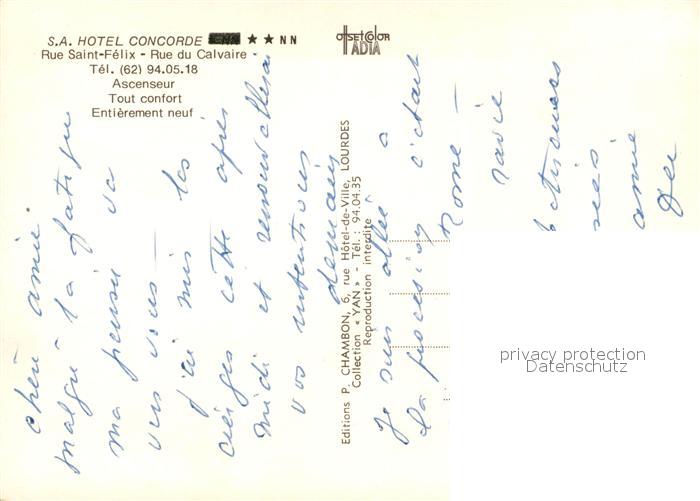 S.A. HOTEL CONCORDE ★★NN
Rue Saint-Félix - Rue du Calvaire
Tél. (62) 94.05.18
Ascenseur
Tout confort
Entièrement neuf
OFFSET COLOR
TADIA
chère amie
malgré la fatigue
ma pensée va
vers vous —
j'ai mis les
cierges cette après
midi et
vos intentions
demain
Editions P. CHAMBON, 6, rue Hôtel-de-Ville, LOURDES
Collection « YAN » - Tél. : 94.04.35
Reproduction interdite
Je suis allée à
la procession c'était
ravie
amie
privacy protection
Datenschutz